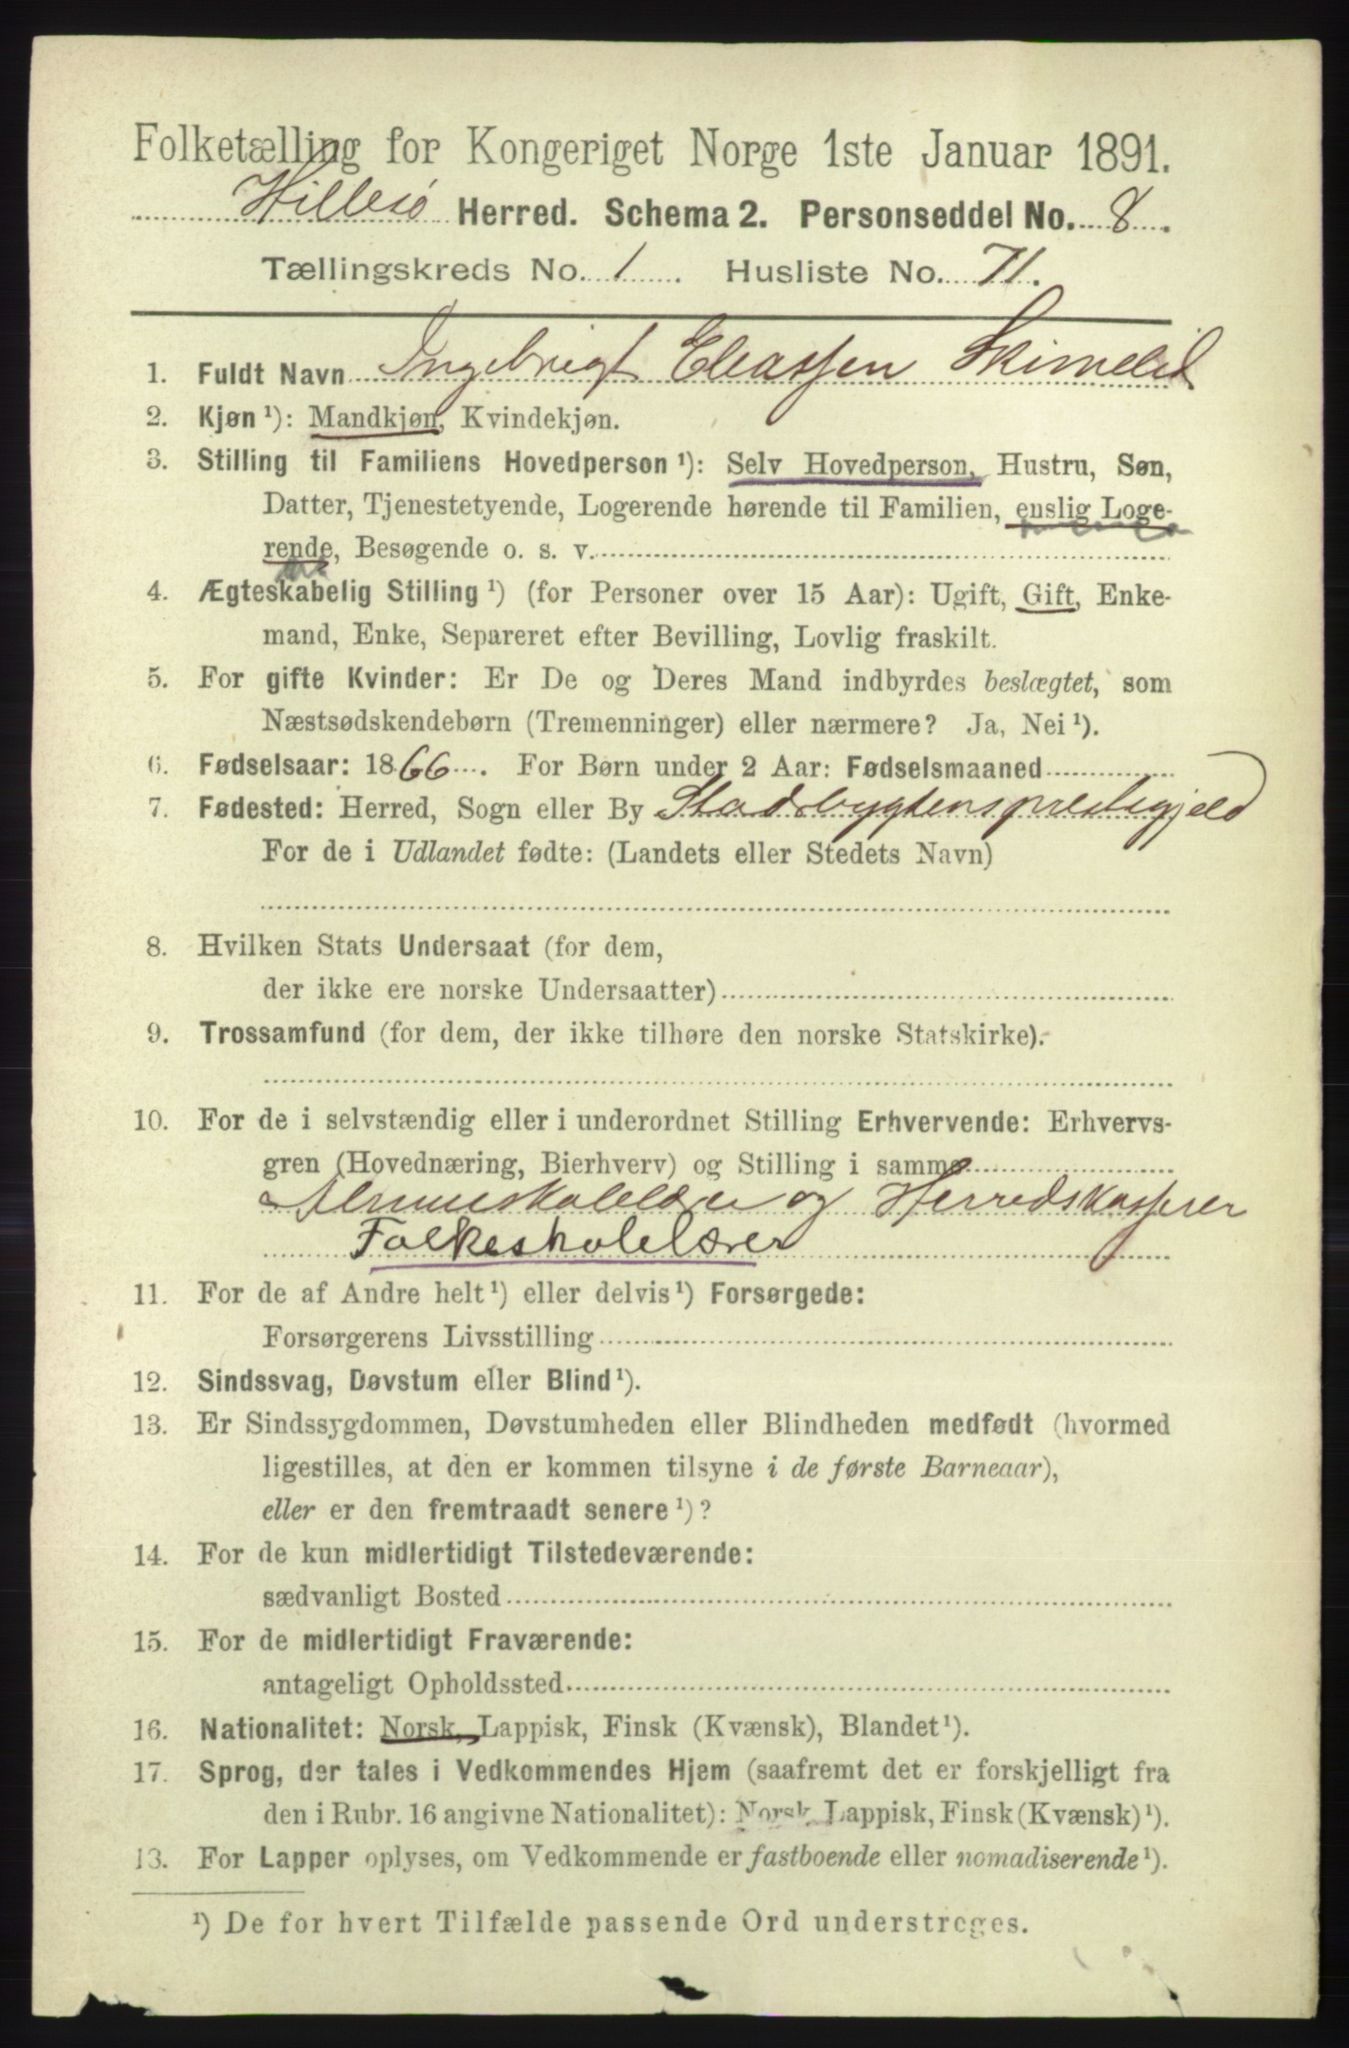 Folketælling for Kongeriget Norge 1ste Januar 1891.
Hillesö Herred. Schema 2. Personseddel No. 8.
Tællingskreds No. 1. Husliste No. 71.
1. Fuldt Navn Ingebrigt Eleassen Skimelid
2. Kjøn ¹): Mandkjøn, Kvindekjøn.
3. Stilling til Familiens Hovedperson ¹): Selv Hovedperson, Hustru, Søn,
Datter, Tjenestetyende, Logerende hørende til Familien, enslig Loge-
rende, Besøgende o. s. v.
4. Ægteskabelig Stilling ¹) (for Personer over 15 Aar): Ugift, Gift, Enke-
mand, Enke, Separeret efter Bevilling, Lovlig fraskilt.
5. For gifte Kvinder: Er De og Deres Mand indbyrdes beslægtet, som
Næstsødskendebørn (Tremenninger) eller nærmere? Ja, Nei ¹).
6. Fødselsaar: 1866. For Børn under 2 Aar: Fødselsmaaned
7. Fødested: Herred, Sogn eller By Stadsbygdens prestegjeld
For de i Udlandet fødte: (Landets eller Stedets Navn)
8. Hvilken Stats Undersaat (for dem,
der ikke ere norske Undersaatter)
9. Trossamfund (for dem, der ikke tilhøre den norske Statskirke).
10. For de i selvstændig eller i underordnet Stilling Erhvervende: Erhvervs-
gren (Hovednæring, Bierhverv) og Stilling i samme
Almueskolelærer og Herredskasserer
Folkeskolelærer
11. For de af Andre helt ¹) eller delvis ¹) Forsørgede:
Forsørgerens Livsstilling
12. Sindssvag, Døvstum eller Blind ¹).
13. Er Sindssygdommen, Døvstumheden eller Blindheden medfødt (hvormed
ligestilles, at den er kommen tilsyne i de første Barneaar),
eller er den fremtraadt senere ¹)?
14. For de kun midlertidigt Tilstedeværende:
sædvanligt Bosted
15. For de midlertidigt Fraværende:
antageligt Opholdssted
16. Nationalitet: Norsk, Lappisk, Finsk (Kvænsk), Blandet ¹).
17. Sprog, der tales i Vedkommendes Hjem (saafremt det er forskjelligt fra
den i Rubr. 16 angivne Nationalitet): Norsk, Lappisk, Finsk (Kvænsk) ¹).
13. For Lapper oplyses, om Vedkommende er fastboende eller nomadiserende ¹).
¹) De for hvert Tilfælde passende Ord understreges.